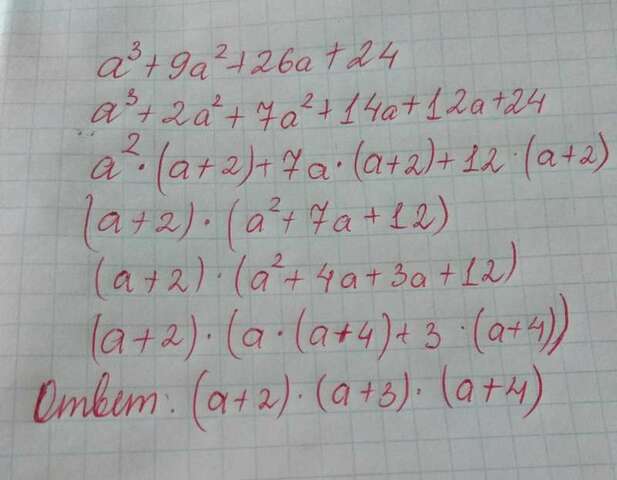 a³ + 9a² + 26a + 24
a³ + 2a² + 7a² + 14a + 12a + 24
a² · (a + 2) + 7a · (a + 2) + 12 · (a + 2)
(a + 2) · (a² + 7a + 12)
(a + 2) · (a² + 4a + 3a + 12)
(a + 2) · (a · (a + 4) + 3 · (a + 4))
Ответ: (a + 2) · (a + 3) · (a + 4)